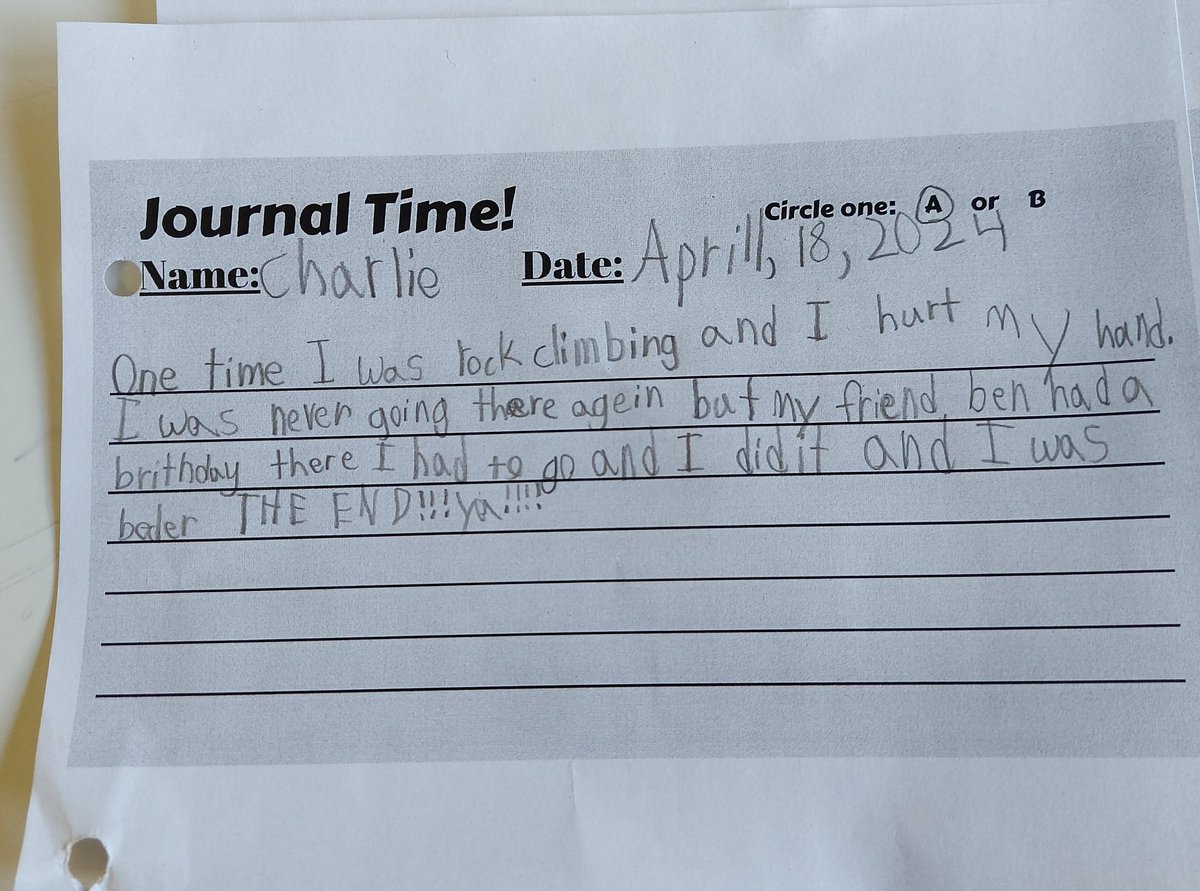 Journal Time! Circle one: A or B
Name: Charlie Date: Aprill, 18, 2024
One time I was rock climbing and I hurt my hand.
I was never going there agein but my friend ben had a
brithday there I had to go and I did it and I was
beder THE END!!! ya!!!!